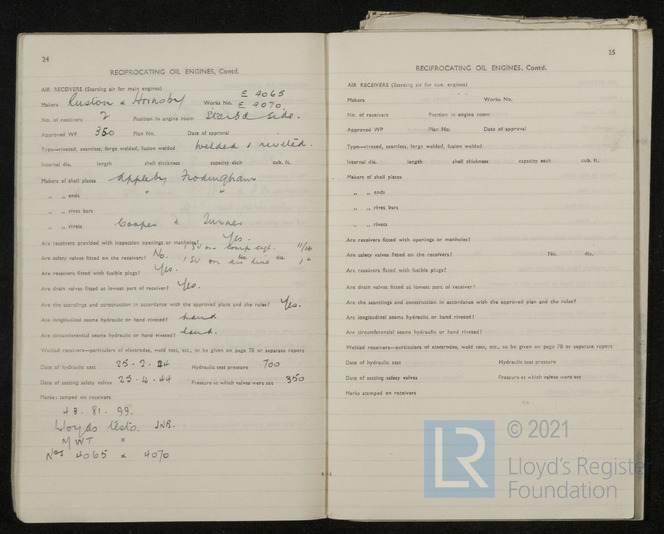 24
RECIPROCATING OIL ENGINES, Contd.
AIR RECEIVERS (Starting air for main engines)
Makers Ruston & Hornsby Works No. E 4065
E 4070.
No. of receivers 2 Position in engine room Starbd side.
Approved WP 350 Plan No. Date of approval
Type—riveted, seamless, forge welded, fusion welded welded & riveted.
Internal dia. length shell thickness capacity each cub. ft.
Makers of shell plates Appleby Frodingham
„ „ ends " "
„ „ rivet bars
„ „ rivets Cooper & Turner
Are receivers provided with inspection openings or manholes? Yes.
Are safety valves fitted on the receivers? No. 1 SV on comp
1 SV on line
Are receivers fitted with fusible plugs? Yes.
Are drain valves fitted at lowest part of receiver? Yes.
Are the scantlings and construction in accordance with the approved plans and the rules? Yes.
Are longitudinal seams hydraulic or hand riveted? hand
Are circumferential seams hydraulic or hand riveted? hand.
Welded receivers—particulars of electrodes, weld test, etc., to be given on page 78 or separate report
Date of hydraulic test 25. 2. 44 Hydraulic test pressure 700
Date of setting safety valves 25. 4. 44 Pressure at which valves were set 350
Marks stamped on receivers
43. 81. 99.
Lloyds Tests. JWR.
MWT "
Nos 4065 & 4070
25
RECIPROCATING OIL ENGINES, Contd.
AIR RECEIVERS (Starting air for aux. engines)
Makers Works No.
No. of receivers Position in engine room
Approved WP Plan No. Date of approval
Type—riveted, seamless, forge welded, fusion welded
Internal dia. length shell thickness capacity each cub. ft.
Makers of shell plates
„ „ ends
„ „ rivet bars
„ „ rivets
Are receivers fitted with inspection openings or manholes?
Are safety valves fitted on the receivers? No. dia.
Are receivers fitted with fusible plugs?
Are drain valves fitted at lowest part of receiver?
Are the scantlings and construction in accordance with the approved plan and the rules?
Are longitudinal seams hydraulic or hand riveted?
Are circumferential seams hydraulic or hand riveted?
Welded receivers—particulars of electrodes, weld test, etc., to be given on page 78 or separate report
Date of hydraulic test Hydraulic test pressure
Date of setting safety valves Pressure at which valves were set
Marks stamped on receivers
LR © 2021
Lloyd's Register
Foundation